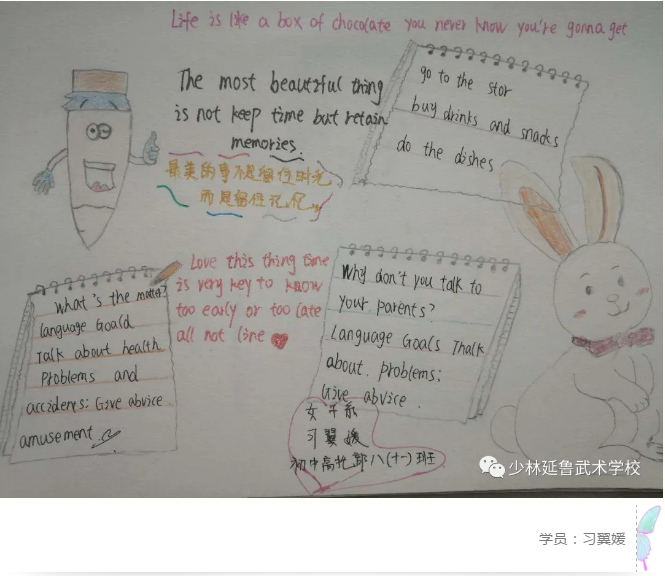 Life is like a box of chocolate you never know you're gonna get
The most beautiful thing
is not keep time but retain
memories.
最美的事不是留住时光
而是留住记忆
go to the stor
buy drinks and snacks
do the dishes
Love this thing time
is very key to know
too early or too late
all not line
What's the matter?
Language Goald
Talk about health
Problems and
accidents; Give abvice.
amusement
Why don't you talk to
your parents?
Language Goals Thalk
about problems;
Give abvice.
女
习翼媛
初中高 部八(十一)班
少林延鲁武术学校
学员：习翼媛